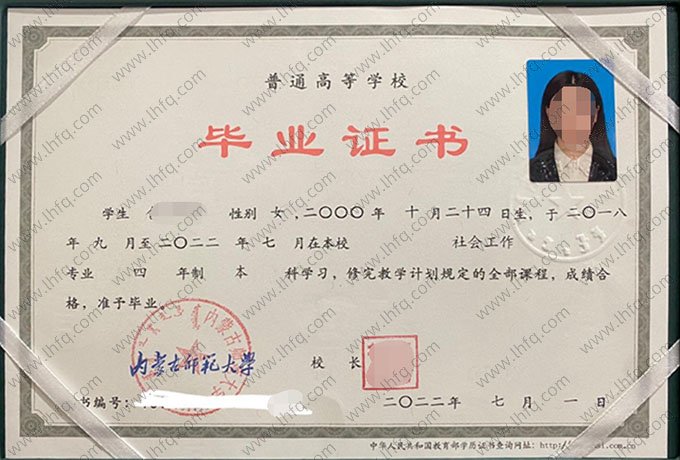 普通高等学校
毕业证书
学生 性别 女，二〇〇〇年 十月二十四日生，于二〇一八
年 九 月至二〇二二 年 七 月在本校 社会工作
专业 四 年制 本 科学习，修完教学计划规定的全部课程，成绩合
格，准予毕业。
内蒙古师范大学
校 长
书编号：
二〇二二年 七 月 一 日
中华人民共和国教育部学历证书查询网址：http://
www.lhfq.com